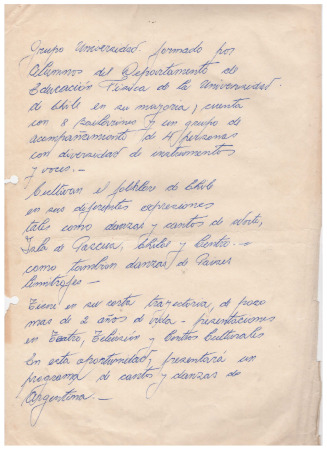 Grupo Universidad. formado por
Alumnos del Departamento de
Educación Física de la Universidad
de Chile en su mayoria, cuenta
con 8 bailarines y un grupo de
acompañamiento de 4 personas
con diversidad de instrumentos
y voces.-
Cultivan el folklore de Chile
en sus diferentes expresiones
tales como danzas y cantos de Norte,
Isla de Pascua, Chiloé y Centro.-
como tambien danzas de Paises
limitrofes-
Tiene en su corta trayectoria, de poco
mas de 2 años de vida - presentaciones
en Teatro, Televisión y Centros Culturales
En esta oportunidad presentará un
programa de cantos y danzas de
Argentina.-